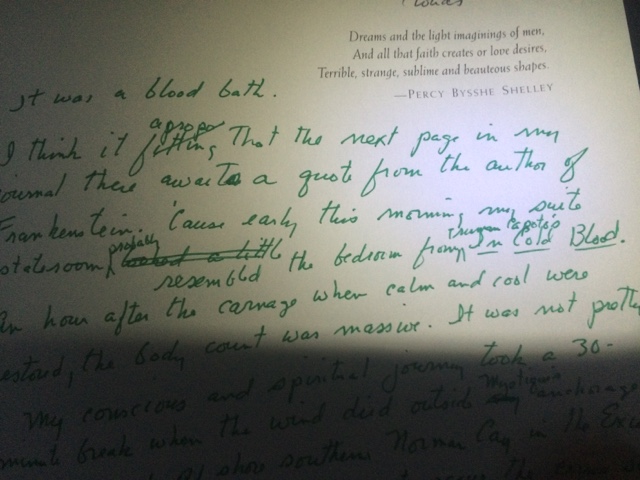 Clouds
Dreams and the light imaginings of men,
And all that faith creates or love desires,
Terrible, strange, sublime and beauteous shapes.
—PERCY BYSSHE SHELLEY
It was a blood bath.
apropo
I think it fitting That the next page in my
journal there awaits a quote from the author of
Frankenstein. 'Cause early this morning my suite
stateroom probably the bedroom from Truman Capote's In Cold Blood.
resembled
An hour after the carnage when calm and cool were
restored, the body count was massive. It was not pretty
My conscious and spiritual journey took a 30-
minute break when the wind died outside Mystique's anchorage
show southern Norman Cay in the Exu